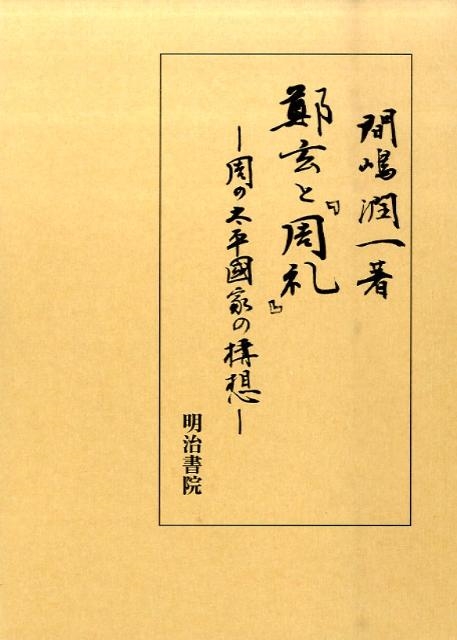 間嶋潤一著
鄭玄と『周礼』
―周の太平國家の構想―
明治書院